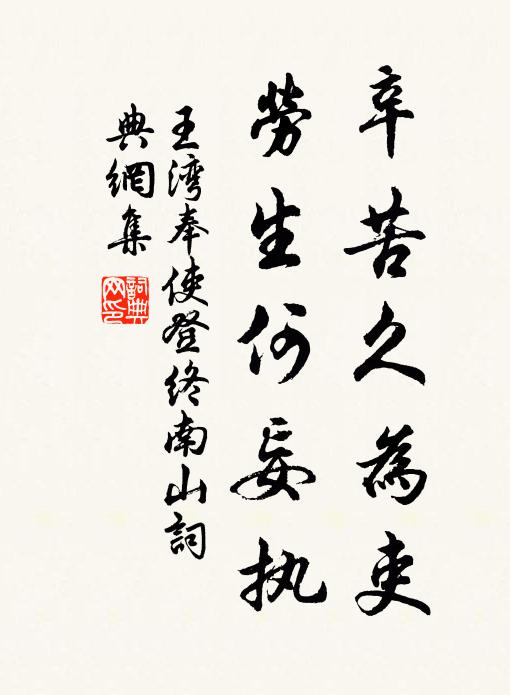 辛苦久為吏
勞生何妄执
王湾奉使登终南山詞
典網集
詞典
网印